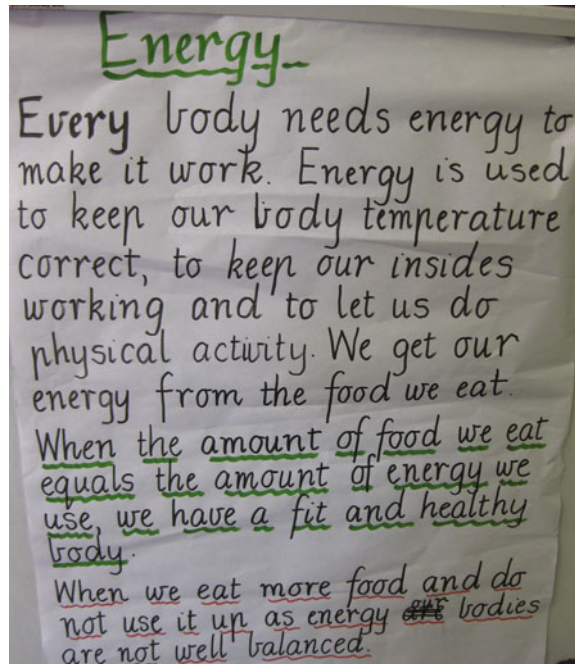 Energy
Every body needs energy to
make it work. Energy is used
to keep our body temperature
correct, to keep our insides
working and to let us do
physical activity. We get our
energy from the food we eat.
When the amount of food we eat
equals the amount of energy we
use, we have a fit and healthy
body.
When we eat more food and do
not use it up as energy bodies
are not well balanced.